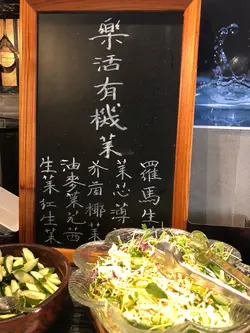 樂活有機菜
羅馬生
菜芯薄
芥茴椰菜
油麥菜芫茜
生菜红生菜